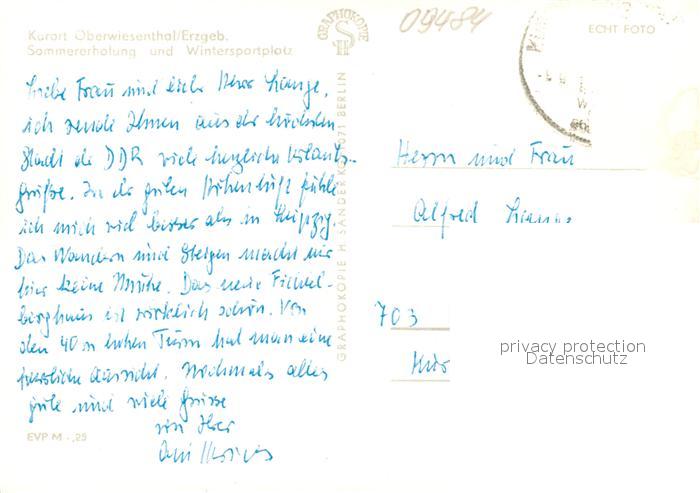 Kurort Oberwiesenthal/Erzgeb.
Sommererholung und Wintersportplatz
Liebe Frau und lieber Herr Lange,
ich sende Ihnen aus der höchsten
Stadt der DDR viele herzliche Urlaubs-
grüße. In der guten Höhenluft fühle
ich mich viel besser als in Leipzig.
Das Wandern und Steigen macht mir
hier keine Mühe. Das neue Fichtel-
berghaus ist wirklich schön. Von
dem 40 m hohen Turm hat man eine
herrliche Aussicht. Nochmals alles
gute und viele Grüsse
von Ihrer
EVP M -,25
GRAPHOKOPIE
GRAPHOKOPIE H. SANDER KG, 1071 BERLIN
09484
ECHT FOTO
Herrn und Frau
Alfred
703
privacy protection
Datenschutz